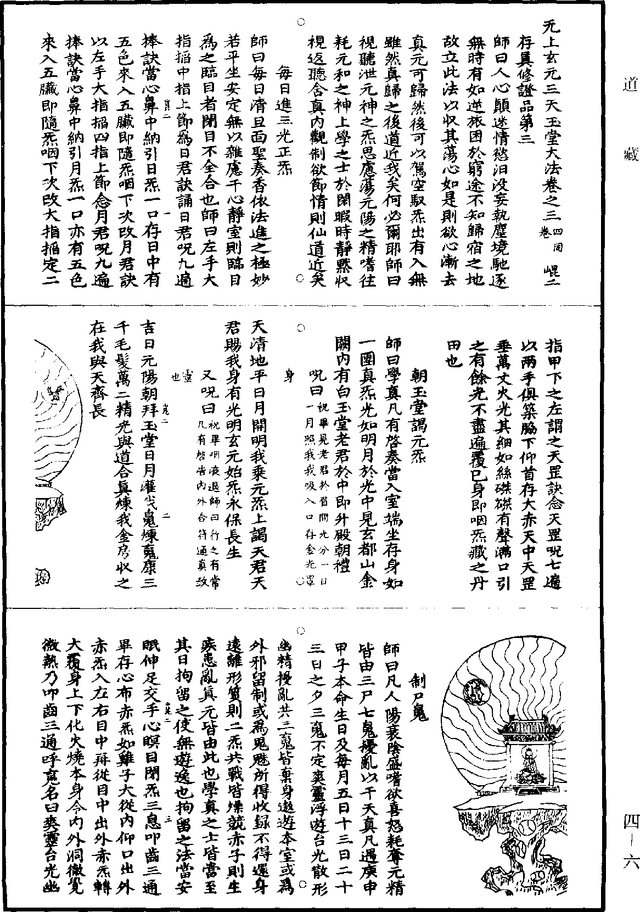 道藏
四—六
无上玄元三天玉堂大法卷之三 四同卷 崐二
存真修證品第三
師曰人心顛迷情慾汩没妄執塵境馳逐
無時有如逆旅困於窮途不知歸宿之地
故立此法以收其蕩心如是則欲心漸去
真元可歸然後可以駕空馭炁出有入無
雖然真歸之後道近我矣何必爾耶師曰
視聽泄元神之炁思慮蕩元陽之精嗜往
耗元和之神上學之士於閑暇時静黙収
視返聽含真内觀制欲節情則仙道近矣
每日進三光正炁
師曰每日清旦面聖奏香依法進之極妙
若平坐安定無以雜慮干心靜室則臨目
為之臨目者閉目不全合也師曰左手大
指掐中指上節為日君訣誦日君呪九遍
捧訣當心鼻中納引日炁一口存日中有
五色來入五臟即隨炁咽下次改月君訣
以左手大指掐四指上節念月君呪九遍
捧訣當心鼻中納引月炁一口亦有五色
來入五臟即隨炁咽下次改大指掐定二
指甲下之左謂之天罡訣念天罡呪七遍
以兩手俱築脇下仰首存大赤天中天罡
垂萬丈火光其細如絲磔磔有聲滿口引
之有餘光不盡遍覆已身即咽炁藏之丹
田也
朝玉堂謁元炁
師曰學真凡有啓奏當入室端坐存身如
一團真炁光如明月於光中見玄都山金
闕内有白玉堂老君於中即升殿朝禮
呪曰 祝畢見老君於眉間光分一日一月照我我吸入口存金光罩
身
天清地平日月開明我乗元炁上謁天君天
君賜我身有光明玄元始炁永保長生
又呪曰 祝畢咽液退師曰行之有常凡有啓告内外合符通真故
靈也
吉日元陽朝拜玉堂日月灌炁䰟煉䰟康三
千毛髮萬二精光與道合真煉我金房収之
在我與天齊長
制尸鬼
師曰凡人陽衰陰盛嗜欲喜怒耗奪元精
皆由三尸七鬼擾亂以干天真凡遇庚申
甲子本命生日及每月五日十三日二十
三日之夕三䰟不定爽靈浮遊台光散形
幽精擾亂共三䰟皆棄身遨遊本室或為
外邪留制或為鬼魅所得收録不得還身
遠離形質則二炁共戰皆燥競赤子則生
疾患亂真元皆由此也學真之士皆當至
其日拘留之使無遊逸也拘留之法當安
眠伸足交手心瞑目閉炁三息叩齒三通
畢存心布赤炁如雞子大從内仰口出外
赤炁入左右目中再從目中出外赤炁轉
大覆身上下化火燒本身令内外洞徹覺
微熱乃叩齒三通呼䰟名曰爽靈台光幽